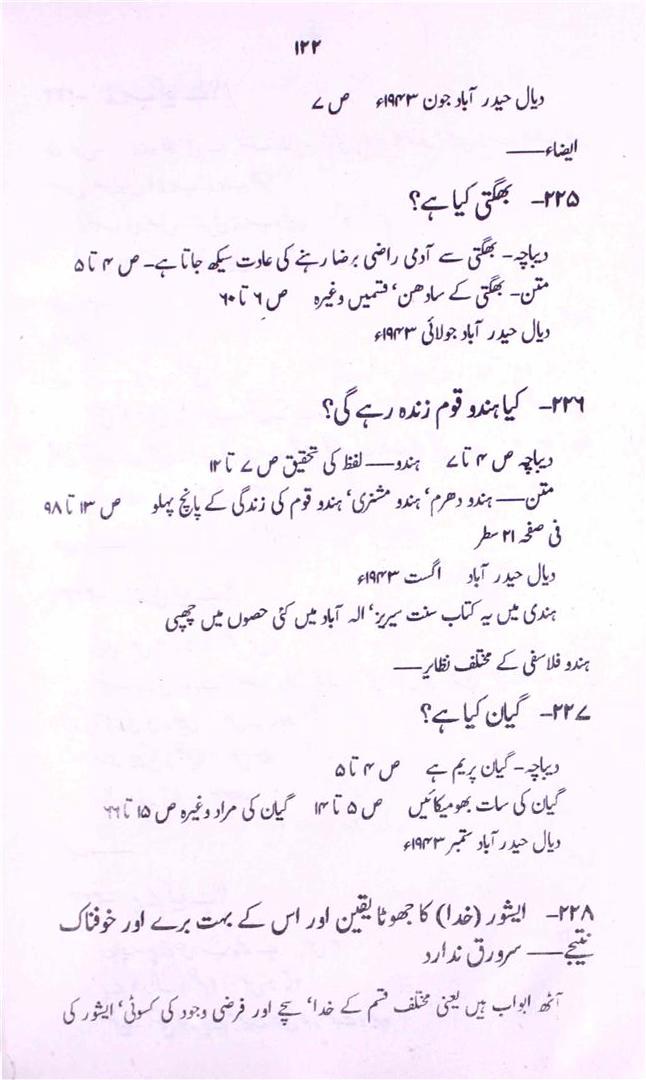 ۱۲۲
دیال حیدر آباد جون ۱۹۴۳ء ص ۷
ایضاء——
۲۲۵- بھگتی کیا ہے؟
دیباچہ- بھگتی سے آدمی راضی برضا رہنے کی عادت سیکھ جاتا ہے- ص ۴ تا ۵
متن- بھگتی کے سادھن‘ قسمیں وغیرہ ص ۶ تا ۶۰
دیال حیدر آباد جولائی ۱۹۴۳ء
۲۲۶- کیا ہندو قوم زندہ رہے گی؟
دیباچہ ص ۴ تا ۷ ہندو—— لفظ کی تحقیق ص ۷ تا ۱۲
متن—— ہندو دھرم‘ ہندو مشنری‘ ہندو قوم کی زندگی کے پانچ پہلو ص ۱۳ تا ۹۸
فی صفحہ ۲۱ سطر
دیال حیدر آباد اگست ۱۹۴۳ء
ہندی میں یہ کتاب سنت سیریز‘ الہ آباد میں کئی حصوں میں چھپی
ہندو فلاسفی کے مختلف نظایر——
۲۲۷- گیان کیا ہے؟
دیباچہ- گیان پریم ہے ص ۴ تا ۵
گیان کی سات بھومیکائیں ص ۵ تا ۱۴ گیان کی مراد وغیرہ ص ۱۵ تا ۶۶
دیال حیدر آباد ستمبر ۱۹۴۳ء
۲۲۸- ایشور (خدا) کا جھوٹا یقین اور اس کے بہت برے اور خوفناک
نتیجے—— سرورق ندارد
آٹھ ابواب ہیں یعنی مختلف قسم کے خدا‘ سچے اور فرضی وجود کی کسوٹی‘ ایشور کی